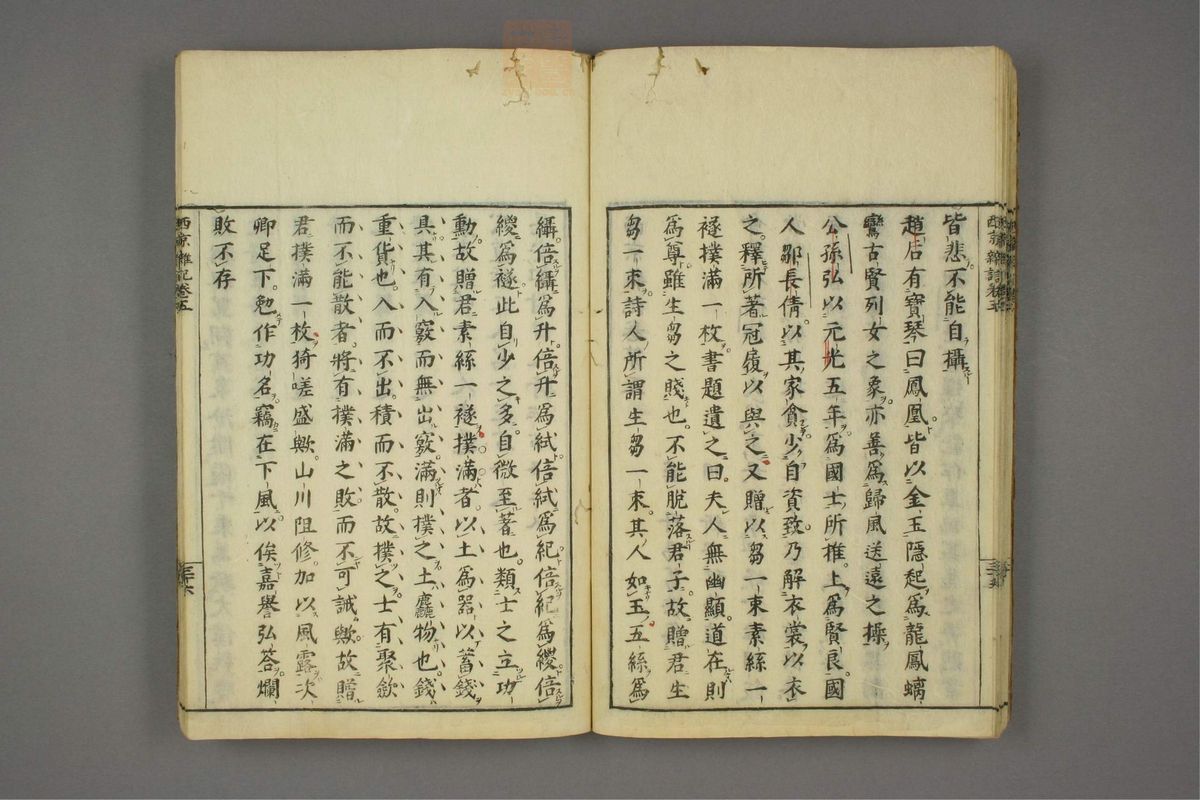 皆悲不能自攝
趙后有寶琴曰鳳凰皆以金玉隱起爲龍鳳螭
鸞古賢列女之象亦善爲歸風送遠之操
公孫弘以元光五年爲國士所推上爲賢良國
人鄒長倩以其家貧少自資致乃解衣裳以衣
之釋所著冠履以與之又贈以芻一束素絲一
襚撲滿一枚書題遺之曰夫人無幽顯道在則
爲尊雖生芻之賤也不能脫落君子故贈君生
芻一束詩人所謂生芻一束其人如玉五絲爲
䌰倍䌰爲升倍升爲𥿮倍𥿮爲紀倍紀爲緵倍
緵爲襚此自少之多自微至著也類士之立功
勳故贈君素絲一襚撲滿者以土爲器以蓄錢
具其有入竅而無出竅滿則撲之土麤物也錢
重貨也入而不出積而不散故撲之士有聚斂
而不能散者將有撲滿之敗而不可誡歟故贈
君撲滿一枚猗嗟盛歟山川阻修加以風露次
卿足下勉作功名竊在下風以俟嘉譽弘答爛
敗不存
西京雜記卷五
三十六